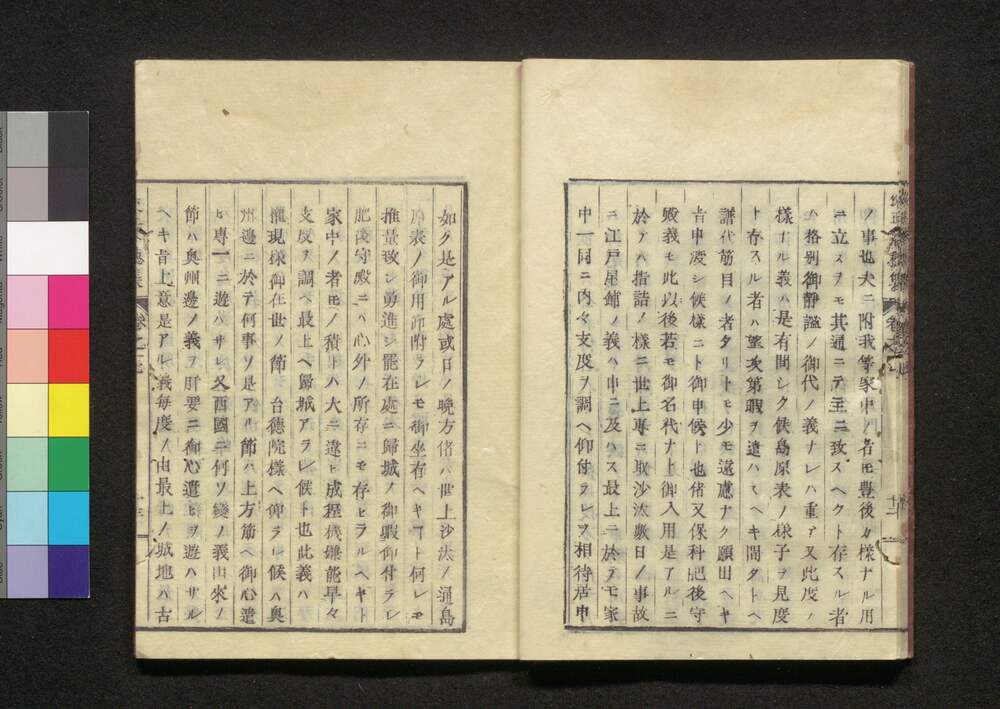 ノ事也夫ニ附我等家中ノ者モ豊後カ様ナル用
ニ立スヲモ其通ニテ主ニ致スヘクト存スル者
ハ格別御靜謐ノ御代ノ義ナレハ重テ又此度ノ
樣ナル義ハ是有間シク候島原表ノ様子ヲ見度
ト存スル者ハ望次第暇ヲ遣ハスヘキ間タトヘ
譜代筋目ノ者タリトモ少モ遠慮ナク願出ヘキ
旨申渡シ候樣ニト御申候ト也偖又保科肥後守
殿義モ此以後若モ御名代ナト御入用是アルニ
於テハ指詰ノ樣ニ世上專ニ取沙汰數日ノ事故
ニ江戸屋鋪ノ義ハ申ニ及ハス最上ニ於テモ家
中一同ニ内々支度ヲ調ヘ仰付ラレヲ相待居申
如ク是アル處或日ノ晩方偖ハ世上沙汰ノ通島
原表ノ御用仰附ラレモ御坐有ヘキヤト何レモ
推量致シ勇進シ罷在處ニ歸城ノ御暇仰付ラレ
肥後守殿ニハ心外ノ所存ニモ存セラルヘキヤト
家中ノ者モノ積トハ大ニ違ヒ成程機嫌能早々
支度ヲ調ヘ最上ヘ歸城アラレ候ト也此義ハ
權現様御在世ノ節 台德院樣ヘ仰ラレ候ハ奥
州邊ニ於テ何事ソ是アル節ハ上方筋ヘ御心遣
ヒ專一ニ遊ハサレ又西國ニ何ソ變ノ義出來ノ
節ハ奥州邊ノ義ヲ肝要ニ御心遣ヒヲ遊ハサル
ヘキ旨上意是アル義毎度ノ由最上ノ城地ハ古